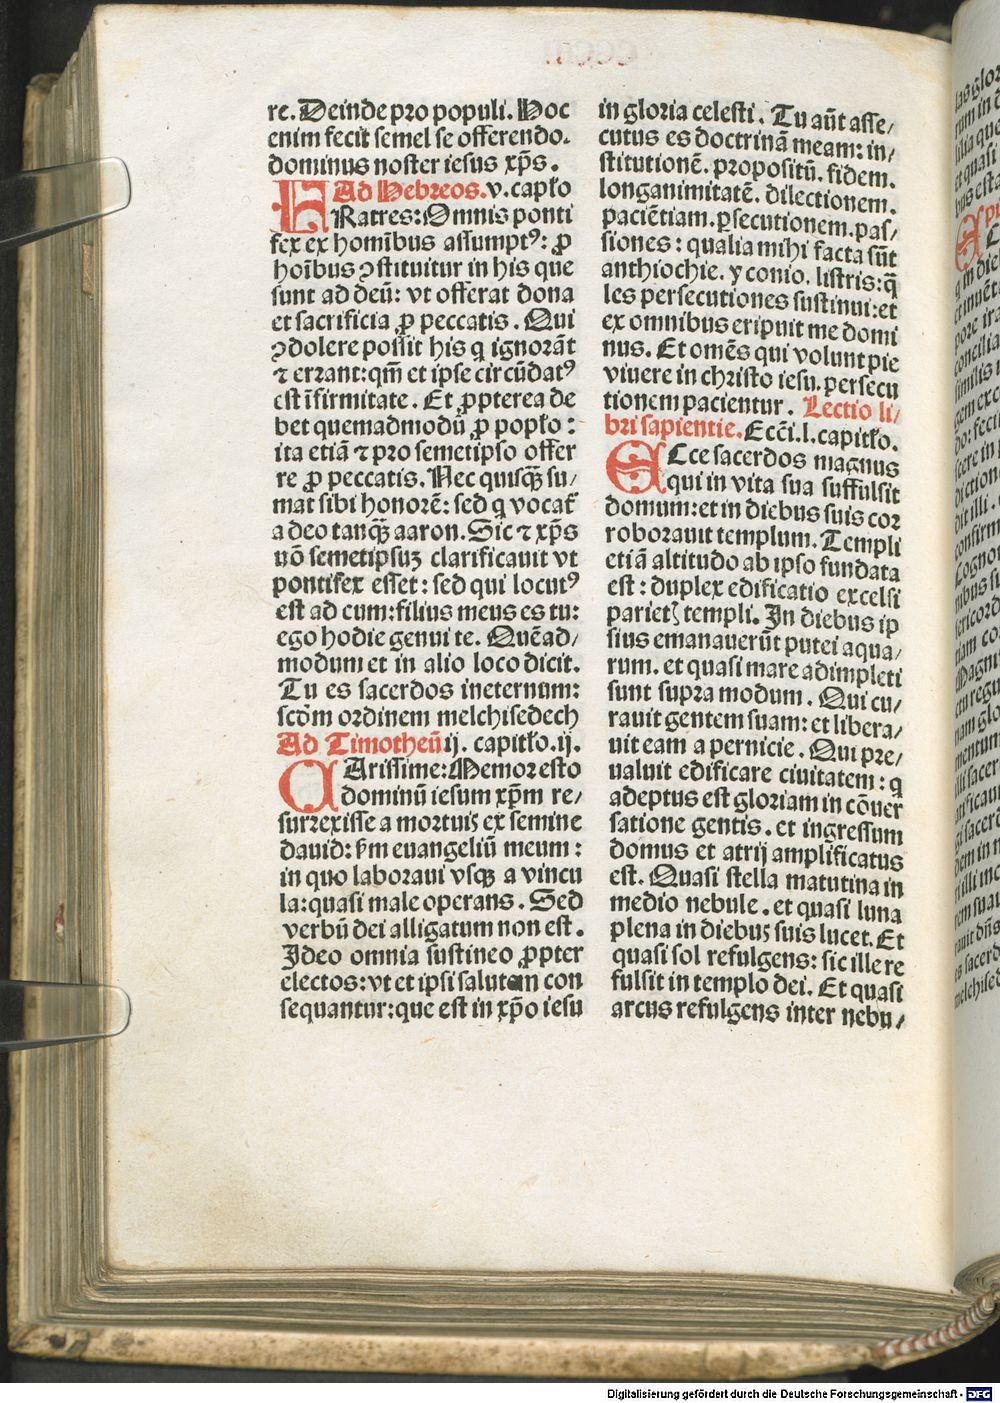 re. Deinde pro populi. Hoc
enim fecit semel se offerendo.
dominus noster iesus xp̄s.
Ad Hebreos. v. capło
FRatres: Omnis ponti
fex ex hominibus assumptꝰ: ꝓ
hoībus ꝯstituitur in his que
sunt ad deū: vt offerat dona
et sacrificia ꝓ peccatis. Qui
ꝯdolere possit his q ignorāt
⁊ errant: qm̄ et ipse circūdatꝰ
est īfirmitate. Et ꝓpterea de
bet quemadmodū ꝓ popło:
ita etiā ⁊ pro semetipso offer
re ꝓ peccatis. Nec quisq̄ su/
mat sibi honorē: sed q vocat̄
a deo tanq̄ aaron. Sic ⁊ xp̄s
nō semetipsuꝫ clarificauit vt
pontifex esset: sed qui locutꝰ
est ad eum: filius meus es tu:
ego hodie genui te. Quēad/
modum et in alio loco dicit.
Tu es sacerdos in eternum:
scd̄m ordinem melchisedech
Ad Timotheū ij. capitło. ij.
CArissime: Memor esto
dominū iesum xp̄m re/
surrexisse a mortuis ex semine
dauid: ẜm euangeliū meum:
in quo laboraui vsqꝫ a vincu
la: quasi male operans. Sed
verbū dei alligatum non est.
Ideo omnia sustineo ꝓpter
electos: vt et ipsi salutem con
sequantur: que est in xp̄o iesu
in gloria celesti. Tu aūt asse/
cutus es doctrinā meam: in/
stitutionē. propositū. fidem.
longanimitatē. dilectionem.
paciētiam. ꝑsecutionem. pas/
siones: qualia mihi facta sūt
anthiochie. yconio. listris: q̄
les persecutiones sustinui: et
ex omnibus eripuit me domi
nus. Et omēs qui volunt pie
viuere in christo iesu. persecu
tionem pacientur. Lectio li/
bri sapientie. Ecc̄i. l. capitło.
ECce sacerdos magnus
qui in vita sua suffulsit
domum: et in diebus suis cor
roborauit templum. Templi
etiā altitudo ab ipso fundata
est: duplex edificatio excelsi
parietꝭ templi. In diebus ip
sius emanauerūt putei aqua/
rum. et quasi mare adimpleti
sunt supra modum. Qui cu/
rauit gentem suam: et libera/
uit eam a pernicie. Qui pre/
ualuit edificare ciuitatem: q
adeptus est gloriam in cōuer
satione gentis. et ingressum
domus et atrij amplificatus
est. Quasi stella matutina in
medio nebule. et quasi luna
plena in diebus suis lucet. Et
quasi sol refulgens: sic ille re
fulsit in templo dei. Et quasi
arcus refulgens inter nebu/
Digitalisierung gefördert durch die Deutsche Forschungsgemeinschaft - DFG